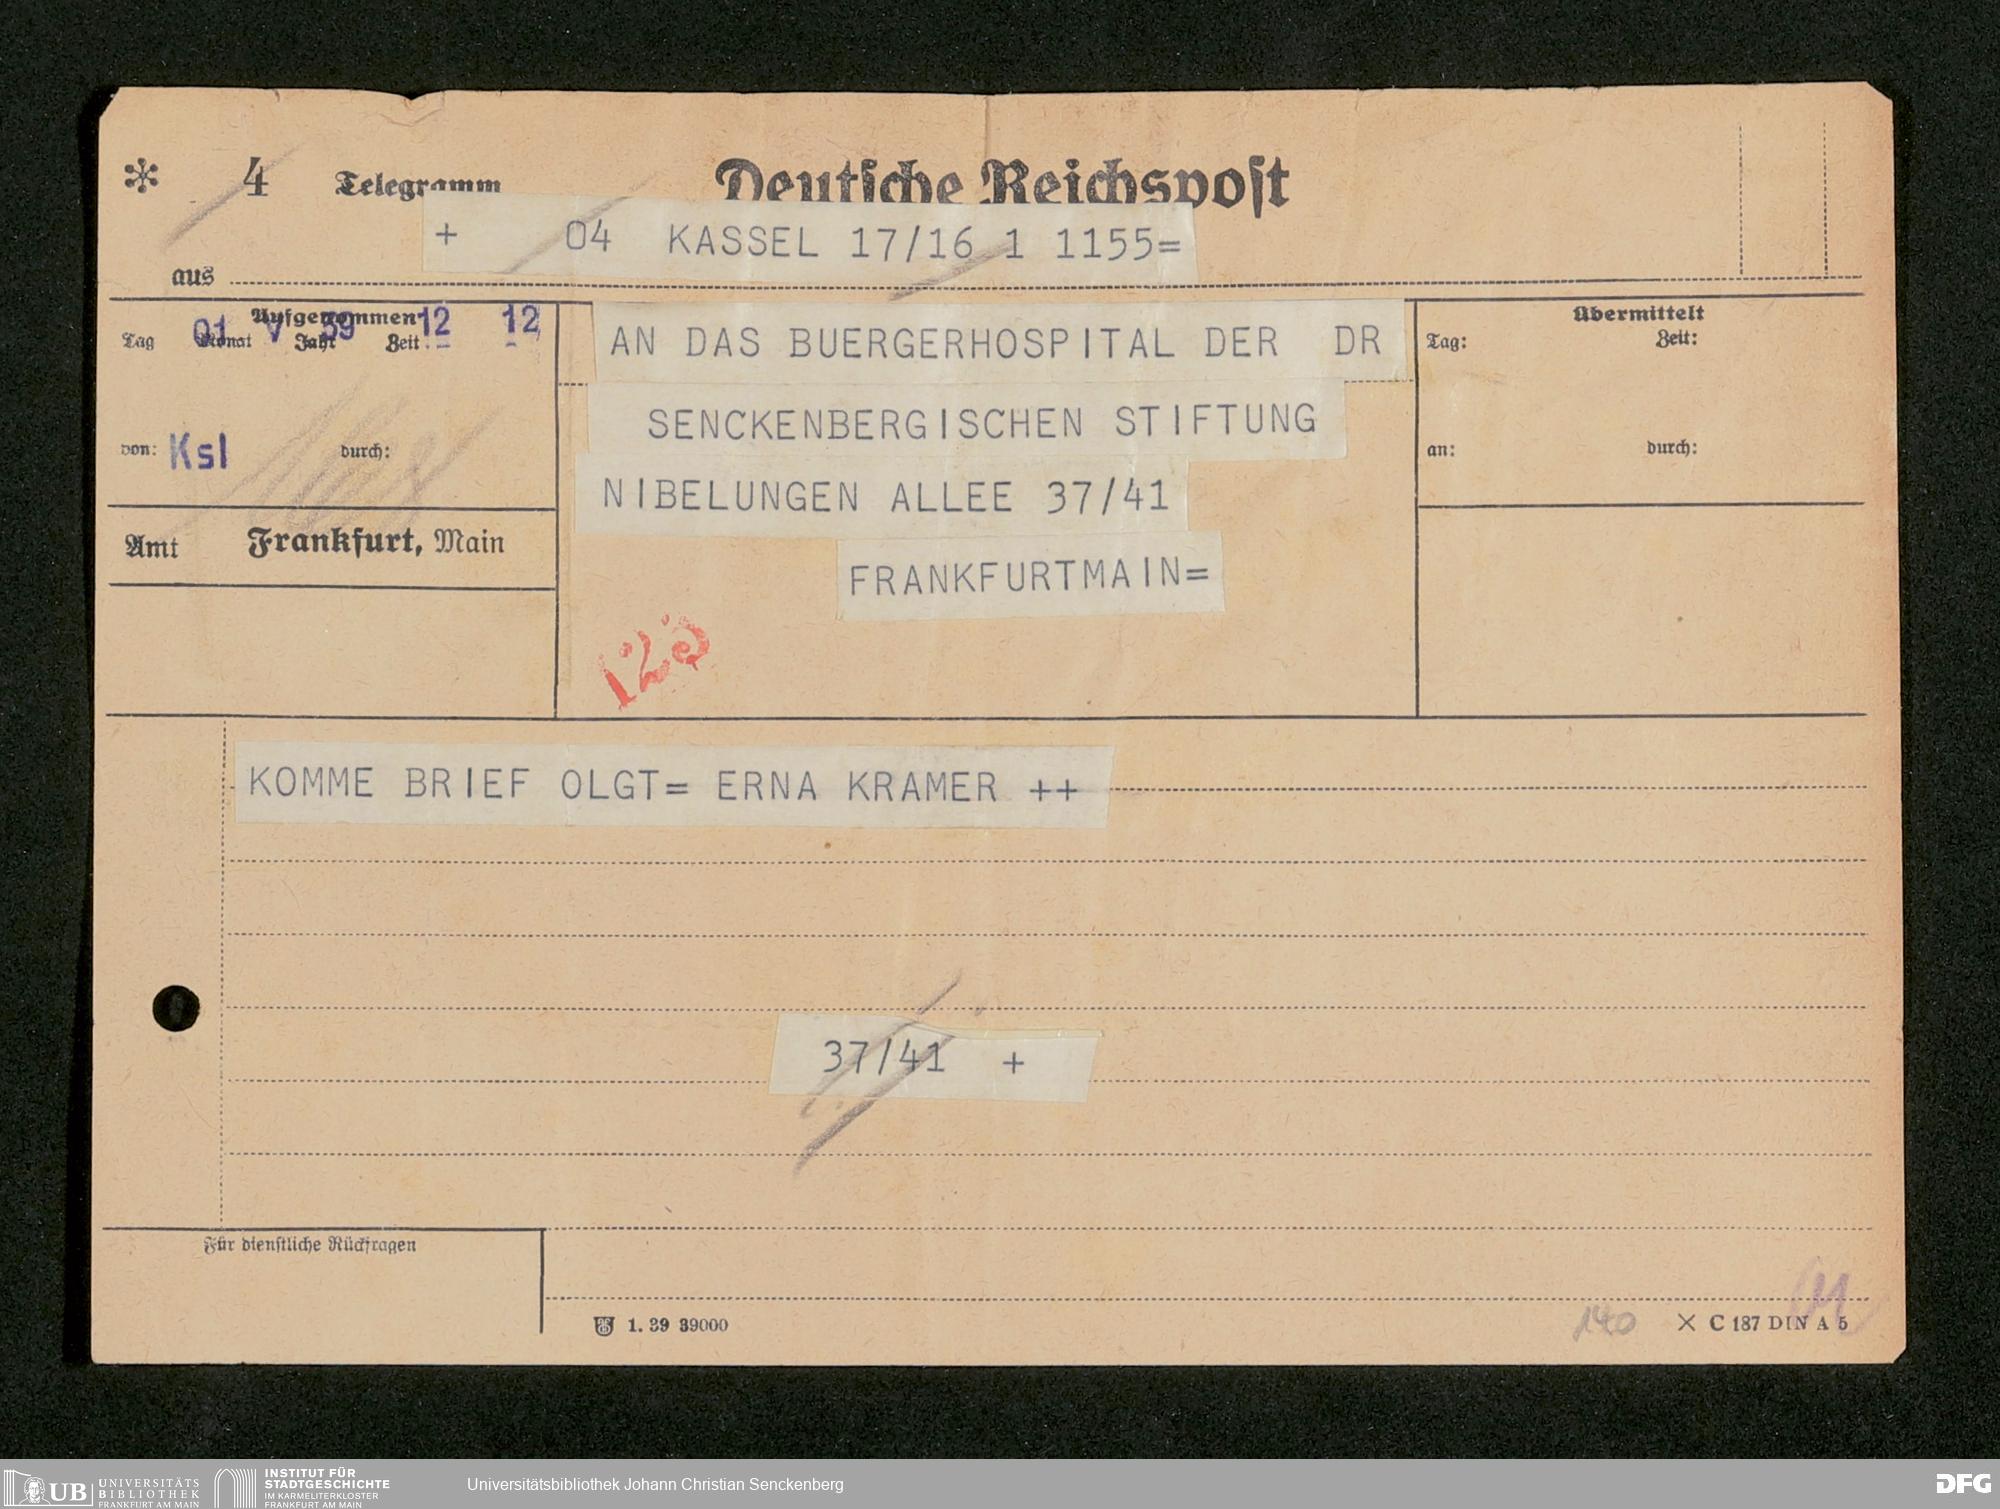 * 4 Telegramm Deutsche Reichspost
+ 04 KASSEL 17/16 1 1155=
aus
Aufgenommen
Tag Monat Jahr Zeit
01 V 39 12 12
von: Ksl durch:
Amt Frankfurt, Main
AN DAS BUERGERHOSPITAL DER DR
SENCKENBERGISCHEN STIFTUNG
NIBELUNGEN ALLEE 37/41
FRANKFURTMAIN=
125
Übermittelt
Tag: Zeit:
an: durch:
KOMME BRIEF OLGT= ERNA KRAMER ++
37/41 +
Für dienstliche Rückfragen
1. 39 39000
140
× C 187 DIN A 5
UB UNIVERSITÄTS
BIBLIOTHEK
FRANKFURT AM MAIN
INSTITUT FÜR
STADTGESCHICHTE
IM KARMELITERKLOSTER
FRANKFURT AM MAIN
Universitätsbibliothek Johann Christian Senckenberg
DFG